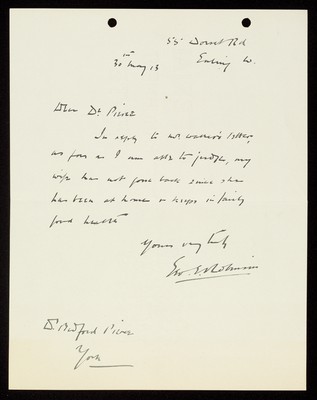 55 Dorset Rd
30th May 13 Ealing W.
Dear Dr Pierce
In reply to letter,
as far as I am able to judge, my
wife has not gone back since she
has been at home & keeps in fairly
good health
Yours very truly
Geo. E. Robinson
Dr Bedford Pierce
York